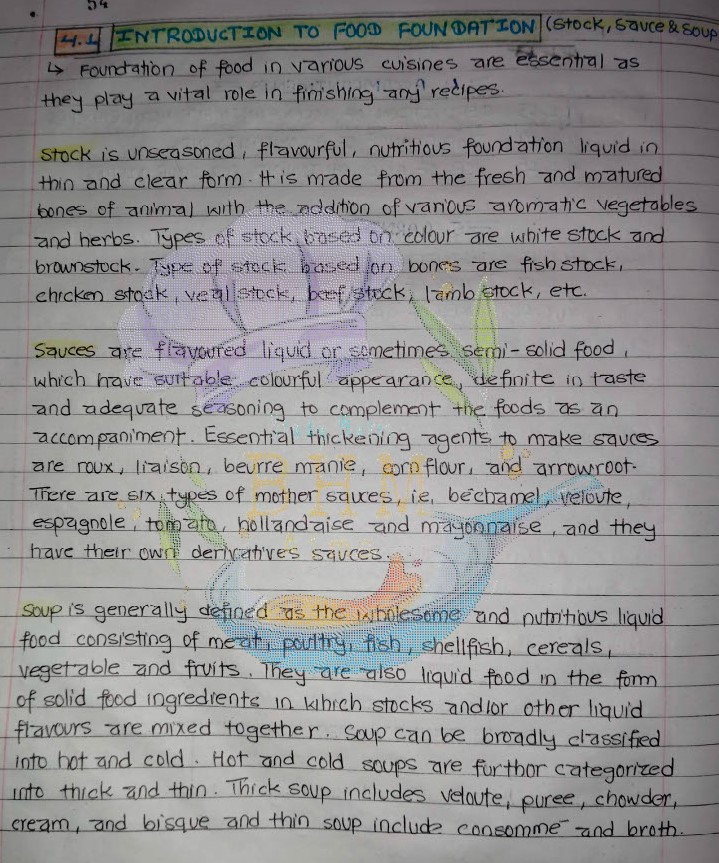 54
4.1 INTRODUCTION TO FOOD FOUNDATION (Stock, Sauce & Soup
↳ Foundation of food in various cuisines are essential as
they play a vital role in finishing 'any' recipes.
Stock is unseasoned, flavourful, nutritious foundation liquid in
thin and clear form. It is made from the fresh and matured
bones of animal with the addition of various aromatic vegetables
and herbs. Types of stock based on colour are white stock and
brownstock. Type of stock based on bones are fish stock,
chicken stock, veal stock, beef stock, lamb stock, etc.
Sauces are flavoured liquid or sometimes semi-solid food,
which have suitable colourful appearance, definite in taste
and adequate seasoning to complement the foods as an
accompaniment. Essential thickening agents to make sauces
are roux, liaison, beurre manie, corn flour, and arrowroot.
There are six types of mother sauces, ie, béchamel, veloute,
espagnole, tomato, hollandaise and mayonnaise, and they
have their own derivatives sauces.
BHM
Soup is generally defined as the wholesome and nutritious liquid
food consisting of meat, poultry, fish, shellfish, cereals,
vegetable and fruits. They are also liquid food in the form
of solid food ingredients in which stocks and/or other liquid
flavours are mixed together. Soup can be broadly classified
into hot and cold. Hot and cold soups are furthor categorized
into thick and thin. Thick soup includes veloute, puree, chowder,
cream, and bisque and thin soup include consommé and broth.